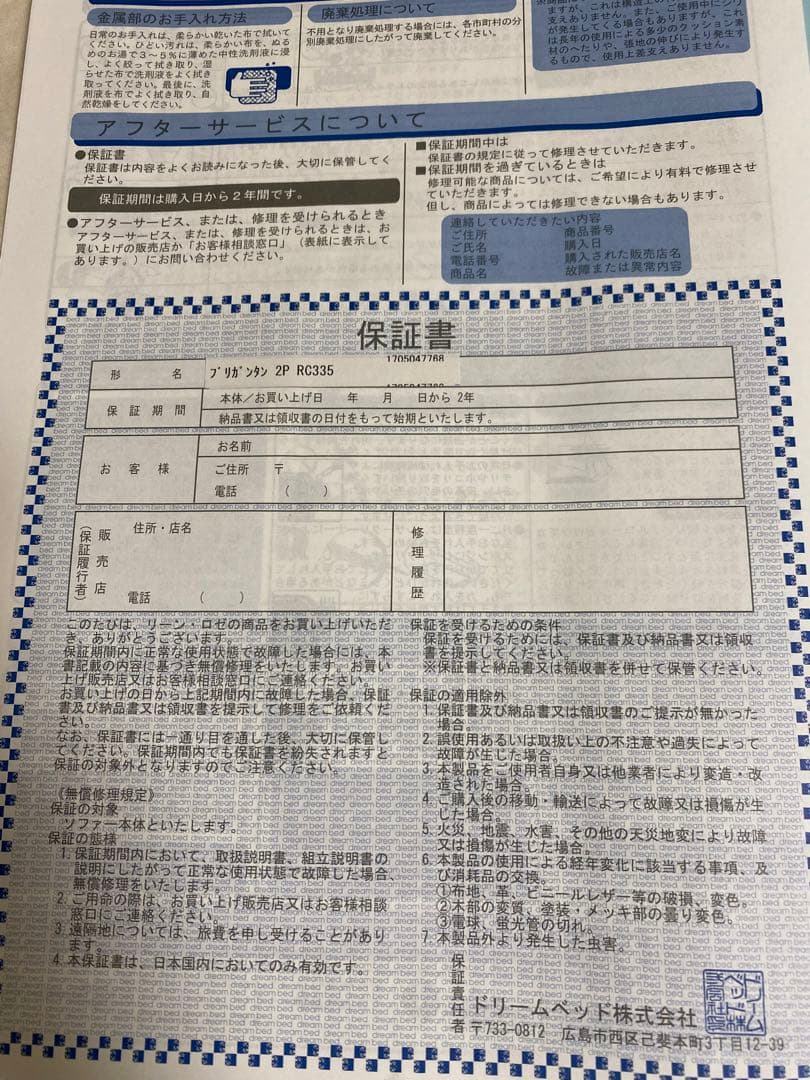 金属部のお手入れ方法
日常のお手入れは、柔らかい乾いた布で拭いて
ください。ひどい汚れは、柔らかい布を、ぬる
めのお湯で3～5%に薄めた中性洗剤液に浸
し、よく絞って拭き取り、湿
らせた布で洗剤液をよく拭き
取ってください。最後に、洗
剤液を布でよく拭き取り、自
然乾燥をしてください。
廃棄処理について
不用となり廃棄処理する場合には、各市町村の分
別廃棄処理にしたがって廃棄してください。
支えありません。また、ご使用中にシワ
が発生してくる場合もありますが、これ
は長年の使用による多少のクッション素
材のへたりや、張地の伸びにより発生す
るもので、使用上差支えありません。
アフターサービスについて
●保証書
保証書は内容をよくお読みになった後、大切に保管してく
ださい。
保証期間は購入日から2年間です。
●アフターサービス、または、修理を受けられるとき
アフターサービス、または、修理を受けられるときは、お
買い上げの販売店か「お客様相談窓口」（表紙に表示して
あります。）にお問い合わせください。
■保証期間中は
保証書の規定に従って修理させていただきます。
■保証期間を過ぎているときは
修理可能な商品については、ご希望により有料で修理させ
ていただきます。
但し、商品によっては修理できない場合もあります。
連絡していただきたい内容
ご住所 商品番号
ご氏名 購入日
電話番号 購入された販売店名
商品名 故障または異常内容
保証書
1705047768
形名 ブリガンタン 2P RC335
保証期間 本体／お買い上げ日 年 月 日から 2年
納品書又は領収書の日付をもって始期といたします。
お客様 お名前
ご住所 〒
電話 （ ）
販売店（保証履行者） 住所・店名
電話 （ ）
修理履歴
このたびは、リーン・ロゼの商品をお買い上げいただ
き、ありがとうございます。
保証期間内に正常な使用状態で故障した場合には、本
書記載の内容に基づき無償修理をいたします。お買い
上げ販売店又はお客様相談窓口にご連絡ください。
お買い上げの日から上記期間内に故障した場合、保証
書及び納品書又は領収書を提示して修理をご依頼くだ
さい。
なお、保証書には一通り目を通した後、大切に保管し
てください。保証期間内でも保証書を紛失されますと
保証の対象外となりますのでご注意ください。
《無償修理規定》
保証の対象
ソファー本体といたします。
保証の態様
1. 保証期間内において、取扱説明書、組立説明書の
説明にしたがって正常な使用状態で故障した場合、
無償修理をいたします。
2. ご用命の際は、お買い上げ販売店又はお客様相談
窓口にご連絡ください。
3. 遠隔地については、旅費を申し受けることがあり
ます。
4. 本保証書は、日本国内においてのみ有効です。
保証を受けるための条件
保証を受けるためには、保証書及び納品書又は領収
書を提示してください。
※保証書と納品書又は領収書を併せて保管ください。
保証の適用除外
1. 保証書及び納品書又は領収書のご提示が無かった
場合。
2. 誤使用あるいは取扱い上の不注意や過失によって
故障が生じた場合。
3. 本製品をご使用者自身又は他業者により変造・改
造された場合。
4. ご購入後の移動・輸送によって故障又は損傷が生
じた場合。
5. 火災、地震、水害、その他の天災地変により故障
又は損傷が生じた場合。
6. 本製品の使用による経年変化に該当する事項、及
び消耗品の交換。
①布地、革、ビニールレザー等の破損、変色。
②木部の変質、塗装・メッキ部の曇り変色。
③電球、蛍光管の切れ。
7. 本製品外より発生した虫害。
保証責任者 ドリームベッド株式会社
〒733-0812 広島市西区己斐本町3丁目12-39